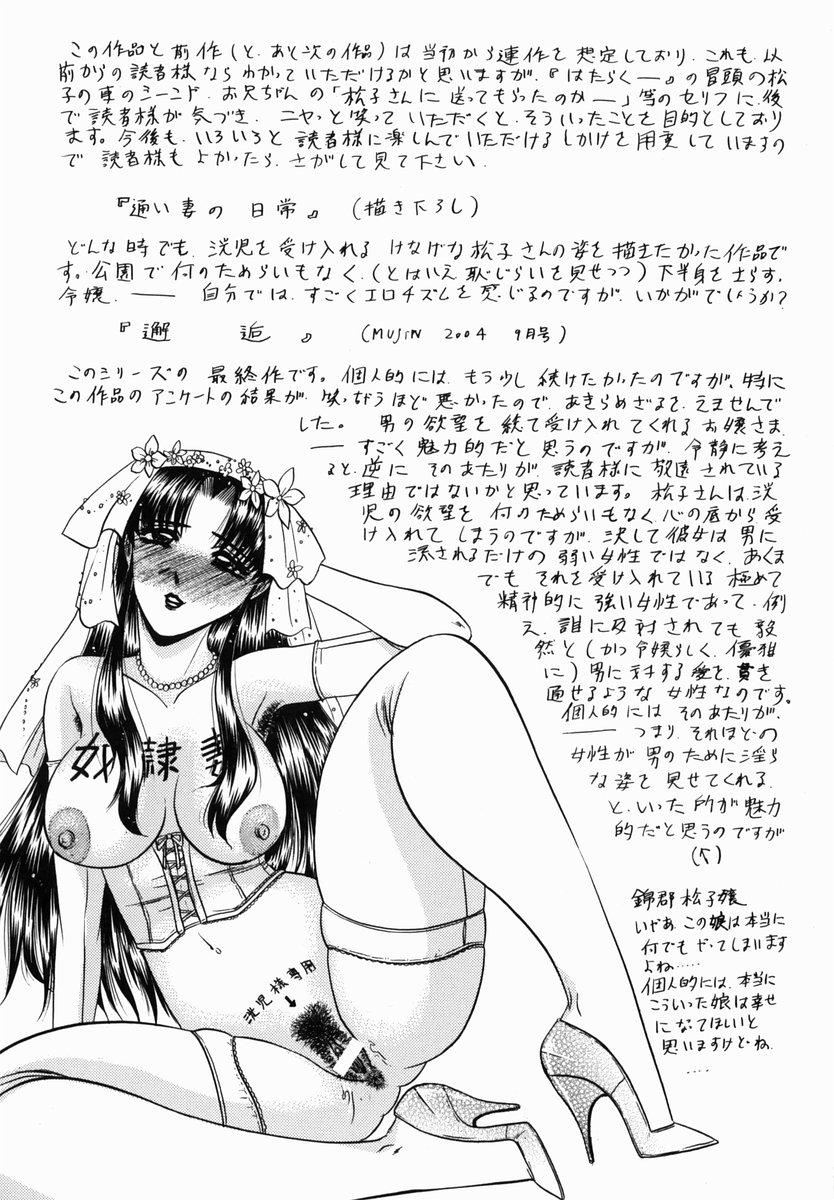 この作品と前作(と、あと次の作品)は当初から連作を想定しており、これも、以
前からの読者様ならわかっていただけるかと思いますが、『はたらく―』の冒頭の松
子の車のシーンや、お兄ちゃんの「松子さんに送ってもらったのか―」等のセリフに、後
で読者様が気づき、ニヤッと笑っていただくと、そういったことを目的としており
ます。今後も、いろいろと読者様に楽しんでいただけるしかけを用意していますの
で読者様もよかったら、さがして見て下さい。
『通い妻の日常』(描き下ろし)
どんな時でも、洸児を受け入れるけなげな松子さんの姿を描きたかった作品で
す。公園で何のためらいもなく、(とはいえ恥じらいを見せつつ)下半身を土らす。
令嬢、―― 自分では、すごくエロチズムを感じるのですが、いかがでしょうか?
『邂逅』(MUJIN 2004 9月号)
このシリーズの最終作です。個人的には、もう少し続けたかったのですが、特に
この作品のアンケートの結果が、笑っちゃうほど悪かったので、あきらめざるを、えませんで
した。男の欲望を統て受け入れてくれるお嬢さま、
――すごく魅力的だと思うのですが、令静に考え
ると、逆にそのあたりが、読者様に敬遠されている
理由ではないかと思っています。松子さんは、洸
児の欲望を何のためらいもなく、心の底から受
け入れてしまうのですが、決して彼女は男に
流されるだけの弱い女性ではなく、あくま
でもそれを受け入れている極めて
精神的に強い女性であって、例
え、誰に反対されても毅
然と(かつ令嬢らしく、優雅
に)男に対する愛を、貫き
通せるような女性なのです。
個人的にはそのあたりが、
――つまり、それほどの
女性が男のために淫ら
な姿を見せてくれる、
と、いった所が魅力
的だと思うのですが
錦郡松子嬢
いやあ、この娘は本当に
何でもやってしまいます
よね……
個人的には、本当に
こういった娘は幸せ
になってほしいと
思いますけどね、
……
奴隷妻
洸児様専用